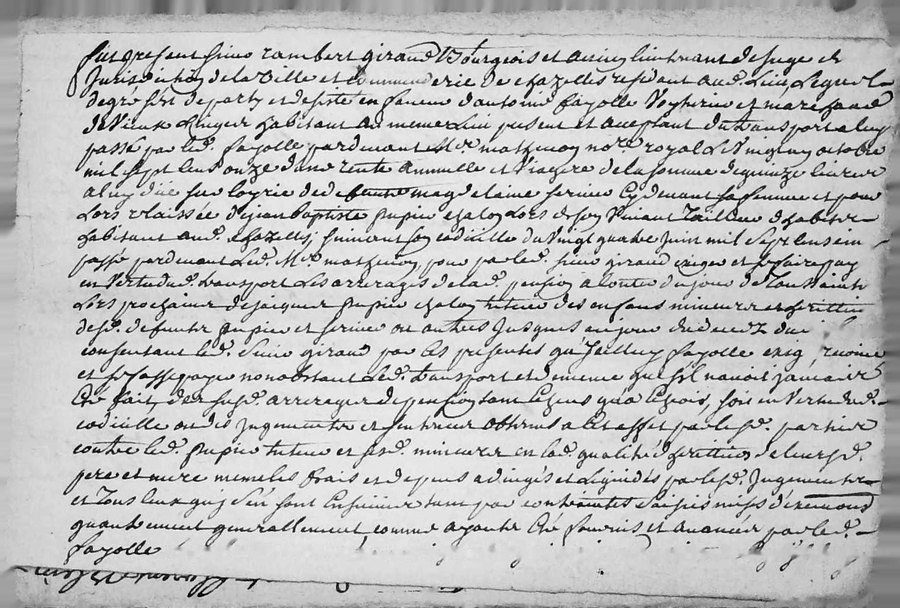 fut present sieur rambert giraud Bourgeois et ancien lieutenant de juge et
Jurisdiction de la Ville et commanderie de chazelles residant aud. Lieu Lequel
degré sest departy et desiste en faveur d'antoine fayolle Voyturier et marchand
de Vieux Linge habitant au meme Lieu present et acceptant du transport a luy
passé par led. fayolle pardevant Me mathevon nore. royal Le Vingt octobre
mil sept cens onze d'une rente annuelle et Viagere de la somme de quinze livres
a luy due sur l'oyrie de magdelaine ferrier Cydevant sa femme et pour
Lors relaissée de jean Baptiste pupier chalon Lors de son Vivant Tailleur d'habits
habitant aud. chazelles suivant son codicille du Vingt quatre Juin mil sept cens
passé pardevant Led. Me mathevon, pour par led. sieur giraud exiger et se faire payer
en Vertu dud. transport Les arrerages de lad. pension a conter du jour de Toussaints
Lors prochaine de jacques pupier chalon tuteur des enfans mineurs et heritiers
desd. defunts pupier et ferrier ou autres Jusques au jour du decez
consentant led. Sieur giraud par Ces presentes qu'Jcelluy fayolle exige, recoive
et se fasse payer nonobstant Led. transport et de meme que s'il n'avoit jamais
Eté fait, des susd. arrerages de pension tant Echeus qu'a Echeoir, soit en Vertu dud.
codicille ou des Jugements et sentences obtenus a Cet effet par lesd. parties
contre led. pupier tuteur et sesd. mineurs en lad. qualité d'heritiers de leursd.
pere et mere memes les frais et depens adjugés et Liquidés par lesd. Jugements
et Tous Ceux qui s'en sont Ensuivis tant par contraintes saisies mises d'
quautrement generallement, comme ayants Eté fournis et avancés par led.
fayolle